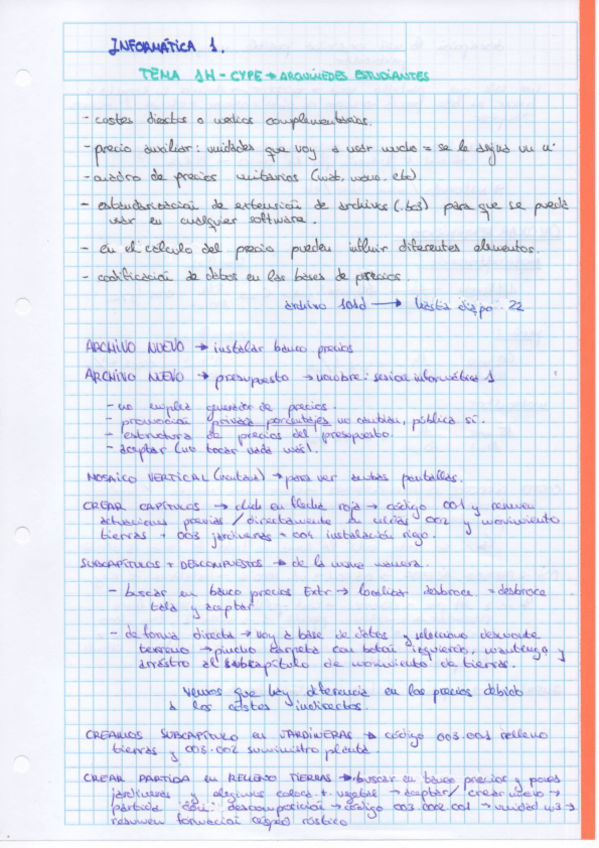 INFORMÁTICA 1.
TEMA 1H - CYPE → ARQUÍMEDES ESTUDIANTES
- costes directos o medios complementarios.
- precio auxiliar: unidades que voy a usar mucho = se le asigna un
- cuadro de precios unitarios (mat, mano, etc)
- estandarización de extensión de archivos (.bc3) para que se pueda
usar en cualquier software.
- en el cálculo del precio pueden influir diferentes elementos.
- codificación de datos en las bases de precios.
archivo 101d → hasta diapo. 22
ARCHIVO NUEVO → instalar banco precios
ARCHIVO NUEVO → presupuesto → nombre: sesion informática 1
- no emplea generador de precios.
- promoción privada porcentajes no cambian, pública sí.
- estructura de precios del presupuesto.
- aceptar (no tocar nada más).
MOSAICO VERTICAL (ventana) → para ver ambas pantallas.
CREAR CAPÍTULOS → click en flecha roja → código 001 y resumen
actuaciones previas / directamente en celdas 002 y movimiento
tierras + 003 jardineras + 004 instalación riego.
SUBCAPÍTULOS + DESCOMPUESTOS → de la misma manera.
- buscar en banco precios Extr → localizar desbroce = desbroce
tala y aceptar
- de forma directa → voy a base de datos y selecciono desmonte
terreno → pincho carpeta con botón izquierdo, mantengo y
arrastro al subcapítulo de movimiento de tierras.
vemos que hay diferencia en los precios debido
a los costes indirectos.
CREAMOS SUBCAPÍTULO en JARDINERAS → código 003.001 relleno
tierras y 003.002 suministro planta.
CREAR PARTIDA en RELLENO TIERRAS → buscar en banco precios y pones
jardineras y elegimos coloca. t. vegetal → aceptar / crear nuevo →
partida con descomposición → código 003.002.001 → unidad m3 →
resumen formación césped rústico